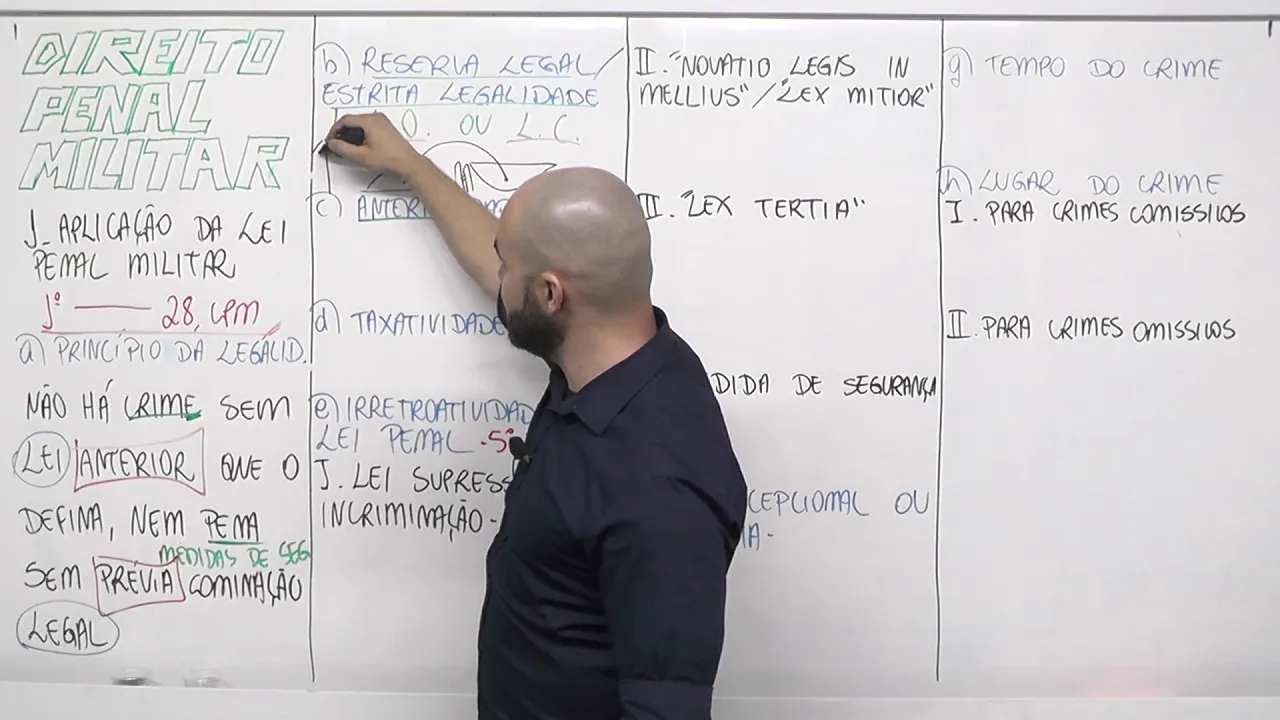 DIREITO
PENAL
MILITAR
1_ APLICAÇÃO DA LEI
PENAL MILITAR
1º — 28, CPM
a) PRINCÍPIO DA LEGALID.
NÃO HÁ CRIME SEM
LEI ANTERIOR QUE O
DEFINA, NEM PENA
MEDIDAS DE SEG
SEM PRÉVIA COMINAÇÃO
LEGAL
b) RESERVA LEGAL/
ESTRITA LEGALIDADE
O. OU L.C.
c)
d) TAXATIVIDADE
e)
LEI PENAL - 5º
I. LEI
INCRIMINAÇÃO -
II. "NOVATIO LEGIS IN
MELLIUS"/"LEX MITIOR"
"LEX TERTIA"
DE SEGURANÇA
OU
g) TEMPO DO CRIME
h) LUGAR DO CRIME
I. PARA CRIMES COMISSIVOS
II. PARA CRIMES OMISSIVOS